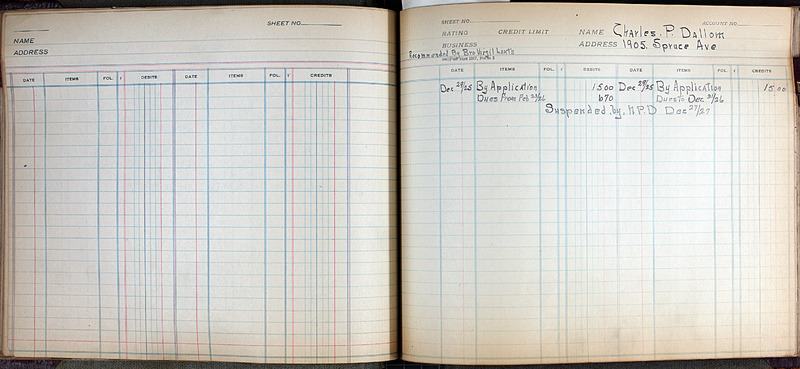 SHEET NO.
NAME
ADDRESS
DATE ITEMS FOL. DEBITS DATE ITEMS FOL. CREDITS
SHEET NO. ACCOUNT NO.
RATING CREDIT LIMIT NAME Charles. P. Dallom
BUSINESS ADDRESS 1905. Spruce Ave
Recommended By Bro Virgil
DATE ITEMS FOL. DEBITS DATE ITEMS FOL. CREDITS
Dec 29/25 By Application 15 00 Dec 29/25 By Application 15 00
Dues From Feb 23/26 6 70 Dues To Dec 31/26
Suspended by. N.P.D Dec 27/27